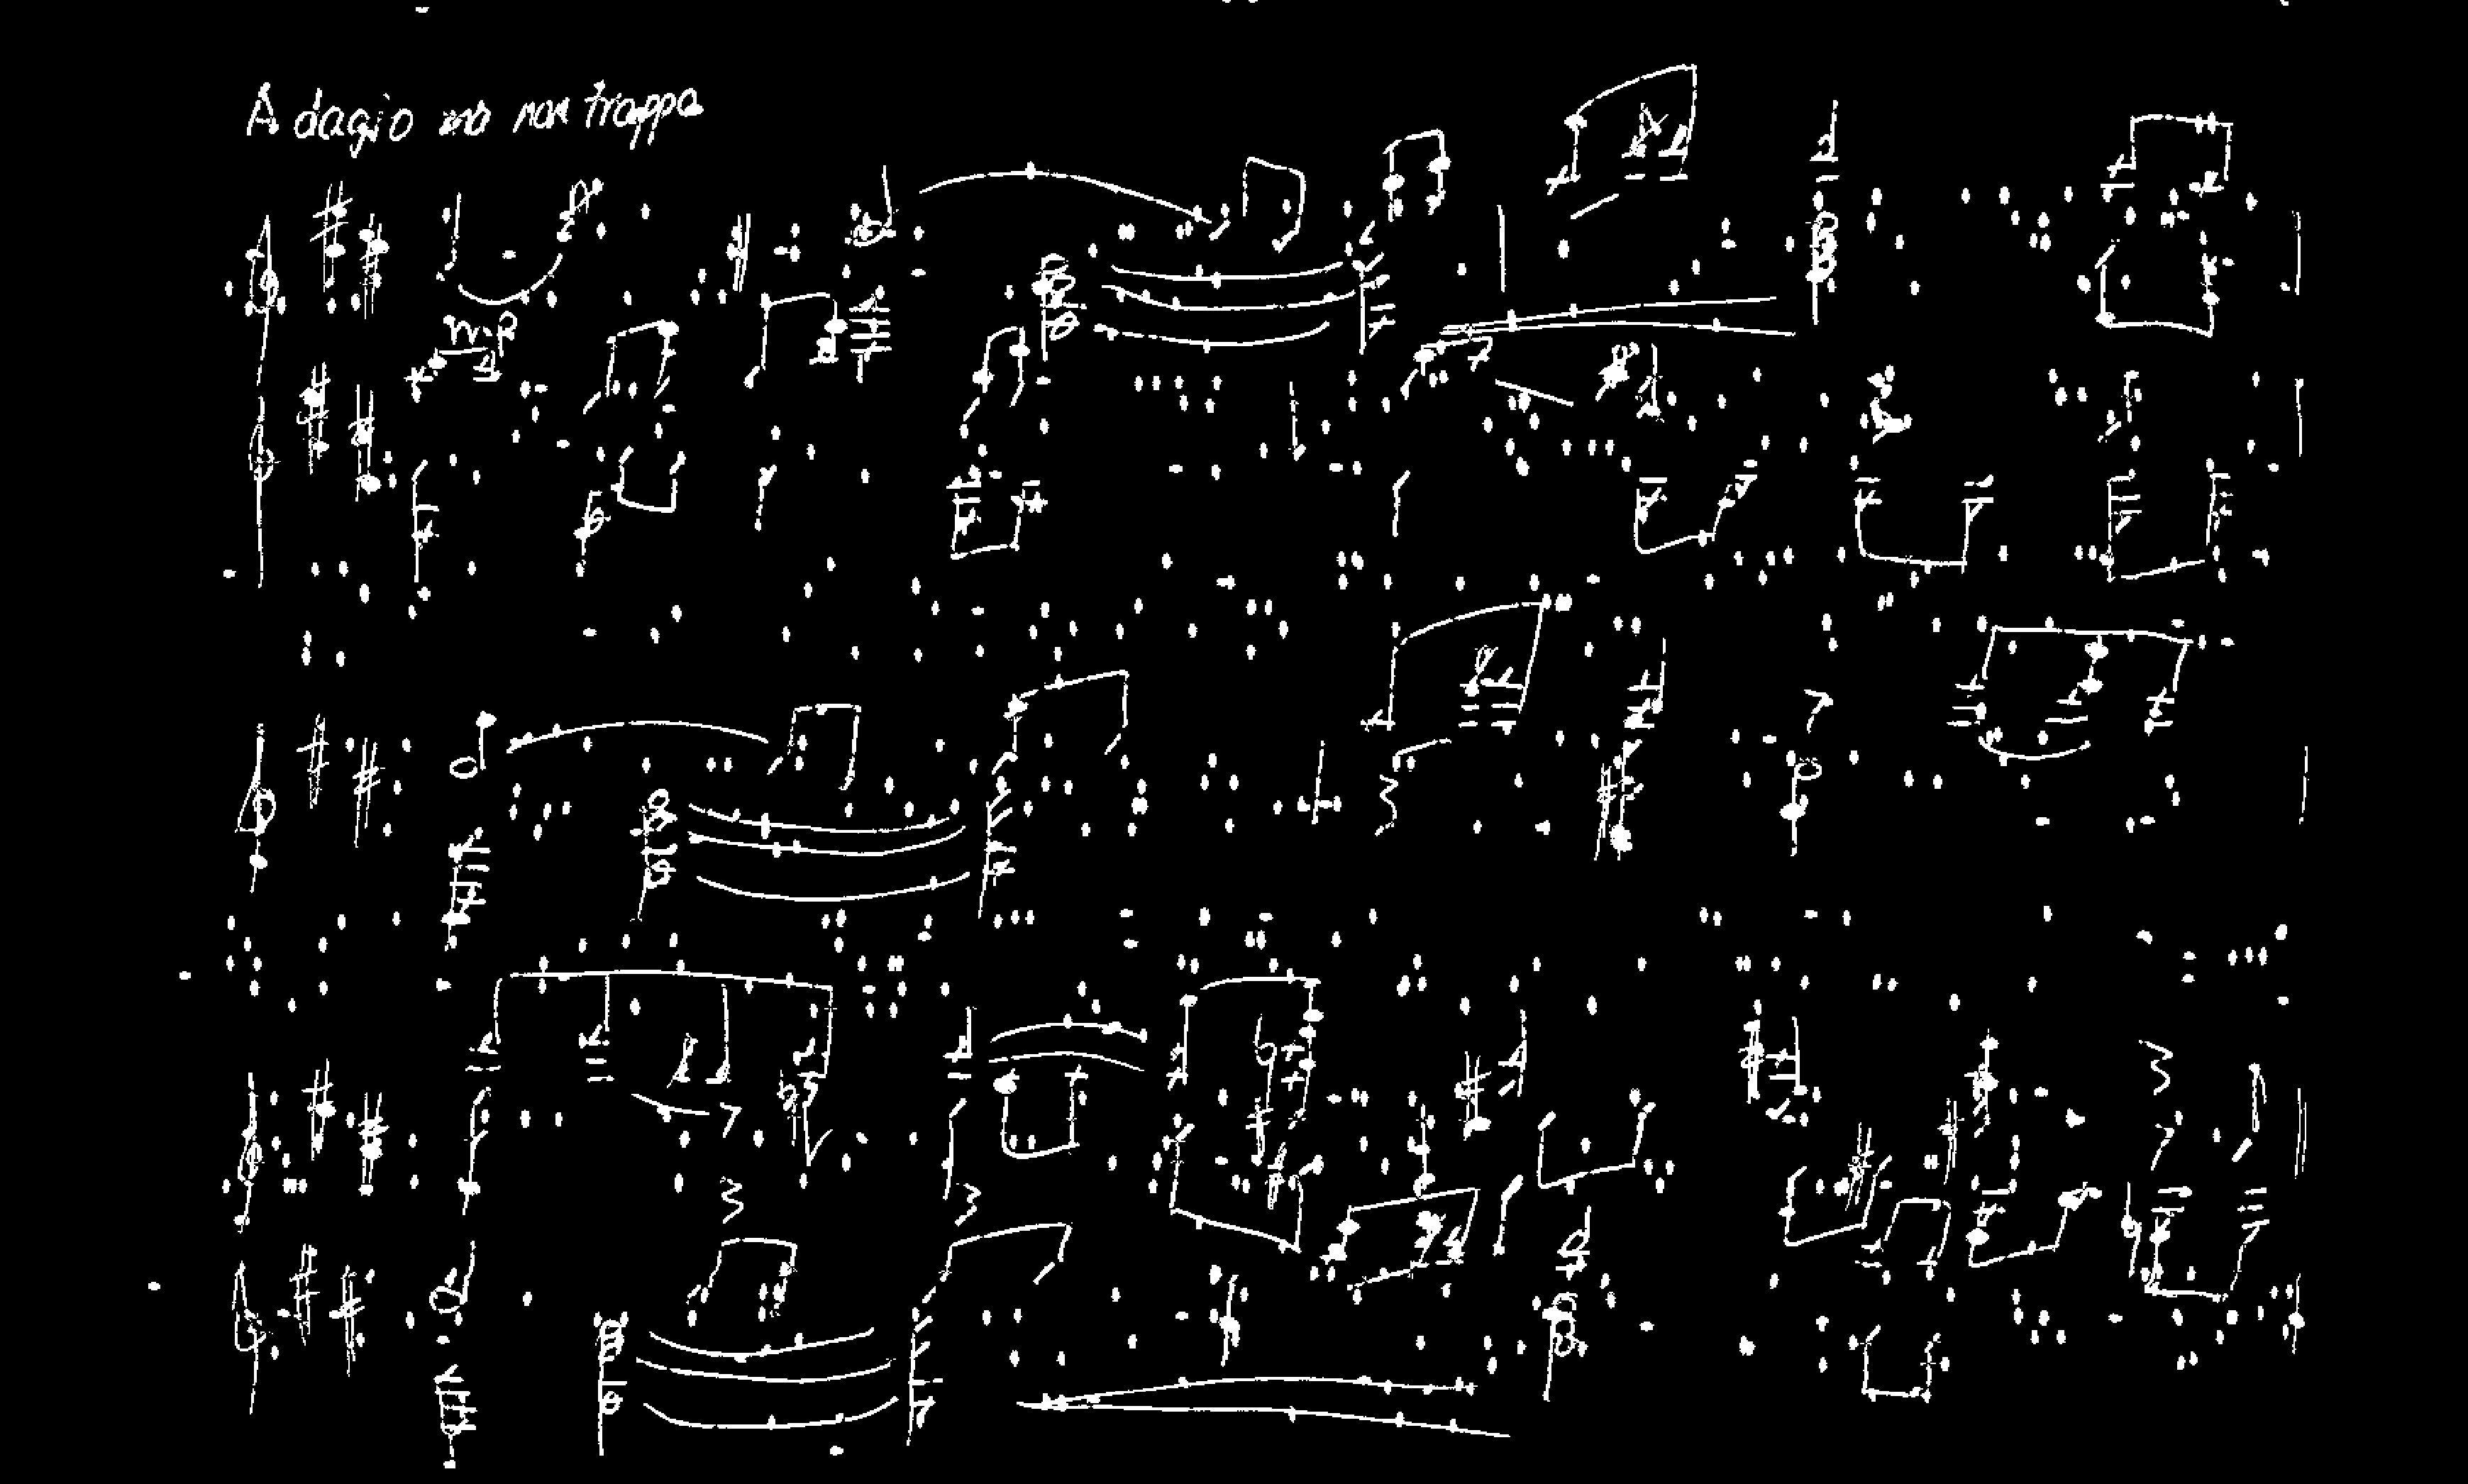 Adagio ma non troppo
m.p